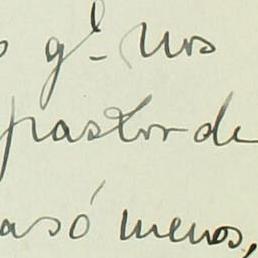 gᵉ- nos
pastor de
asó menos,